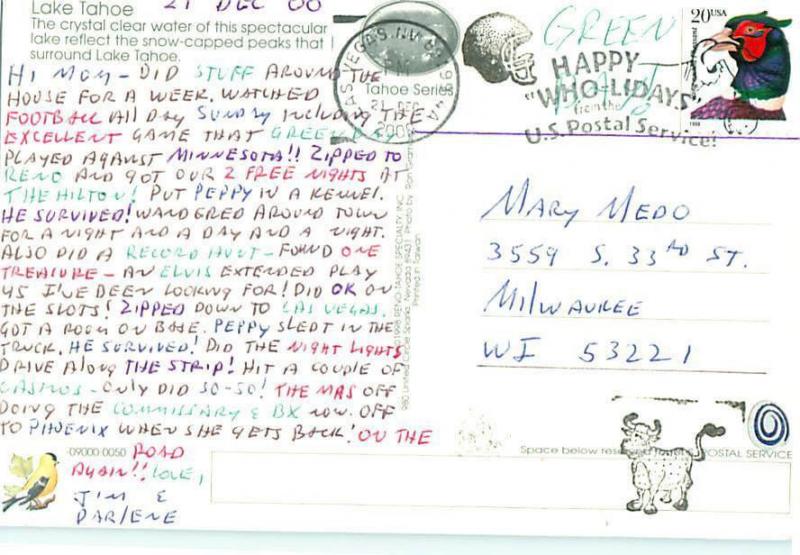 Lake Tahoe
21 DEC 00
The crystal clear water of this spectacular
lake reflect the snow-capped peaks that
surround Lake Tahoe.
HI MOM - DID STUFF AROUND THE
HOUSE FOR A WEEK. WATCHED
FOOTBALL All DAY SUNDAY INCluDING THE
EXCELLENT GAME THAT GREEN BAY
PLAYED AGAINST MINNESOTA!! ZIPPED TO
RENO AND GOT OUR 2 FREE NIGHTS AT
THE HILTON! PUT PEPPY IN A KENNEL.
HE SURVIVED! WANDERED AROUND TOWN
FOR A NIGHT AND A DAY AND A NIGHT.
ALSO DID A RECORD HUNT - FOUND ONE
TREASURE - AN ELVIS EXTENDED PLAY
45 I'VE BEEN LOOKING FOR! DID OK ON
THE SLOTS! ZIPPED DOWN TO LAS VEGAS.
GOT A ROOM ON BASE. PEPPY SLEPT IN THE
TRUCK. HE SURVIVED! DID THE NIGHT LIGHTS
DRIVE AlONG THE STRIP! HIT A COUPLE OF
CASINOS - ONLY DID SO-SO! THE MRS OFF
DOING THE COMMISSARY & BX NOW. OFF
TO PHOENIX WHEN SHE GETS BACK! ON THE
ROAD
AGAIN!! LOVE,
JIM &
DARLENE
09000 0050
Tahoe Series
LAS VEGAS, NV
PM
21 DEC
2000
GREEN
HAPPY
"WHO-LIDAYS"
from the
U.S. Postal Service!
20USA
1998
©1998 RENO-TAHOE SPECIALTY INC.
Printed in Taiwan
MARY MEDO
3559 S. 33RD ST.
MILWAUKEE
WI 53221
Space below reserved for U.S. POSTAL SERVICE